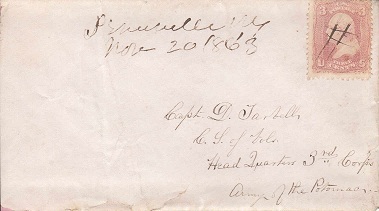 Nov 20 1863
Capt. D. Tarbell
C. S. of Vols.
Head Quarters 3rd Corps
Army of the Potomac